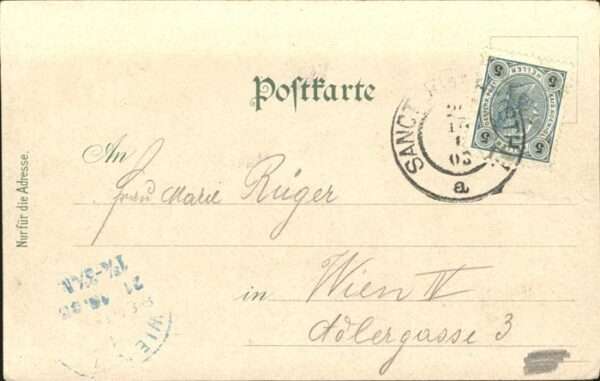 Postkarte
SANCT
03
a
5 HELLER 5
5 5
An
Frau Marie Rüger
in Wien IV
Adlergasse 3
Nur für die Adresse.
21
WIE